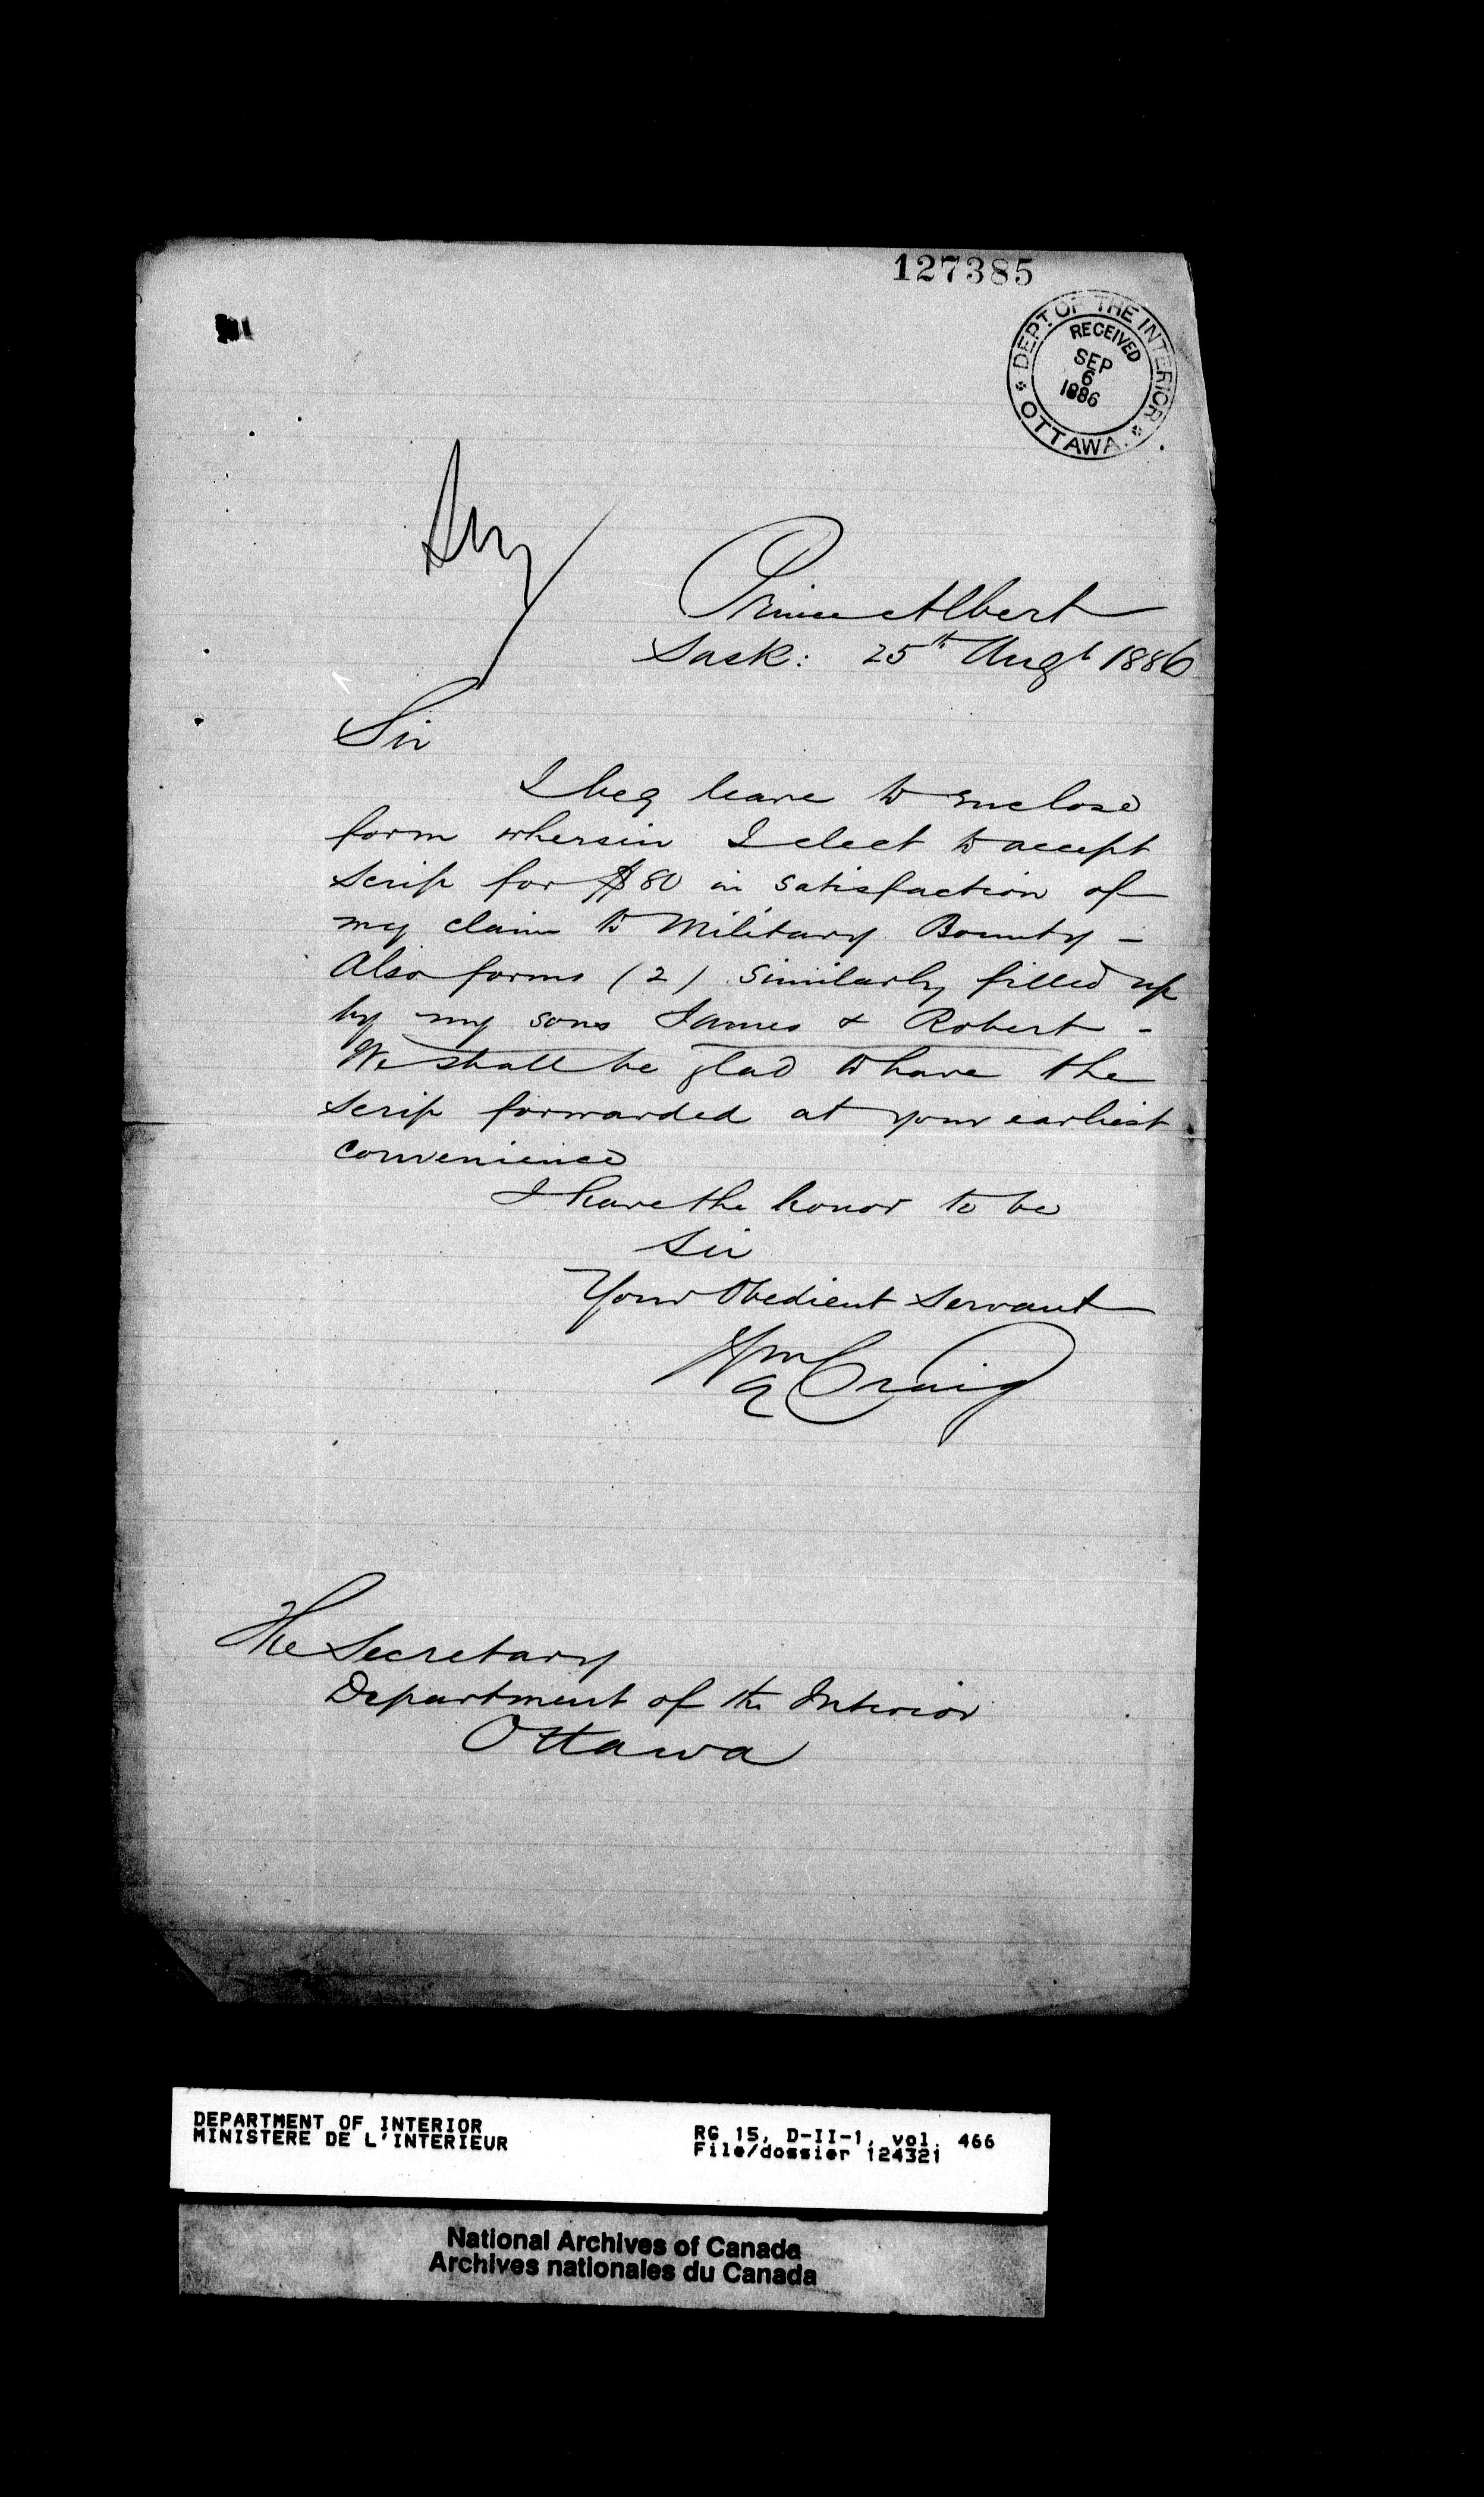 127385
DEPT. OF THE INTERIOR
RECEIVED
SEP
6
1886
OTTAWA.
Prince Albert
Sask: 25th Augt 1886
Sir
I beg leave to enclose
form wherein I elect to accept
scrip for $80 in satisfaction of
my claim to Military Bounty -
Also forms (2) similarly filled up
by my sons James & Robert -
We shall be glad to have the
scrip forwarded at your earliest
convenience
I have the honor to be
Sir
Your Obedient Servant
Wm Craig
The Secretary
Department of the Interior
Ottawa
DEPARTMENT OF INTERIOR
MINISTERE DE L'INTERIEUR
RG 15, D-II-1, vol. 466
File/dossier 124321
National Archives of Canada
Archives nationales du Canada